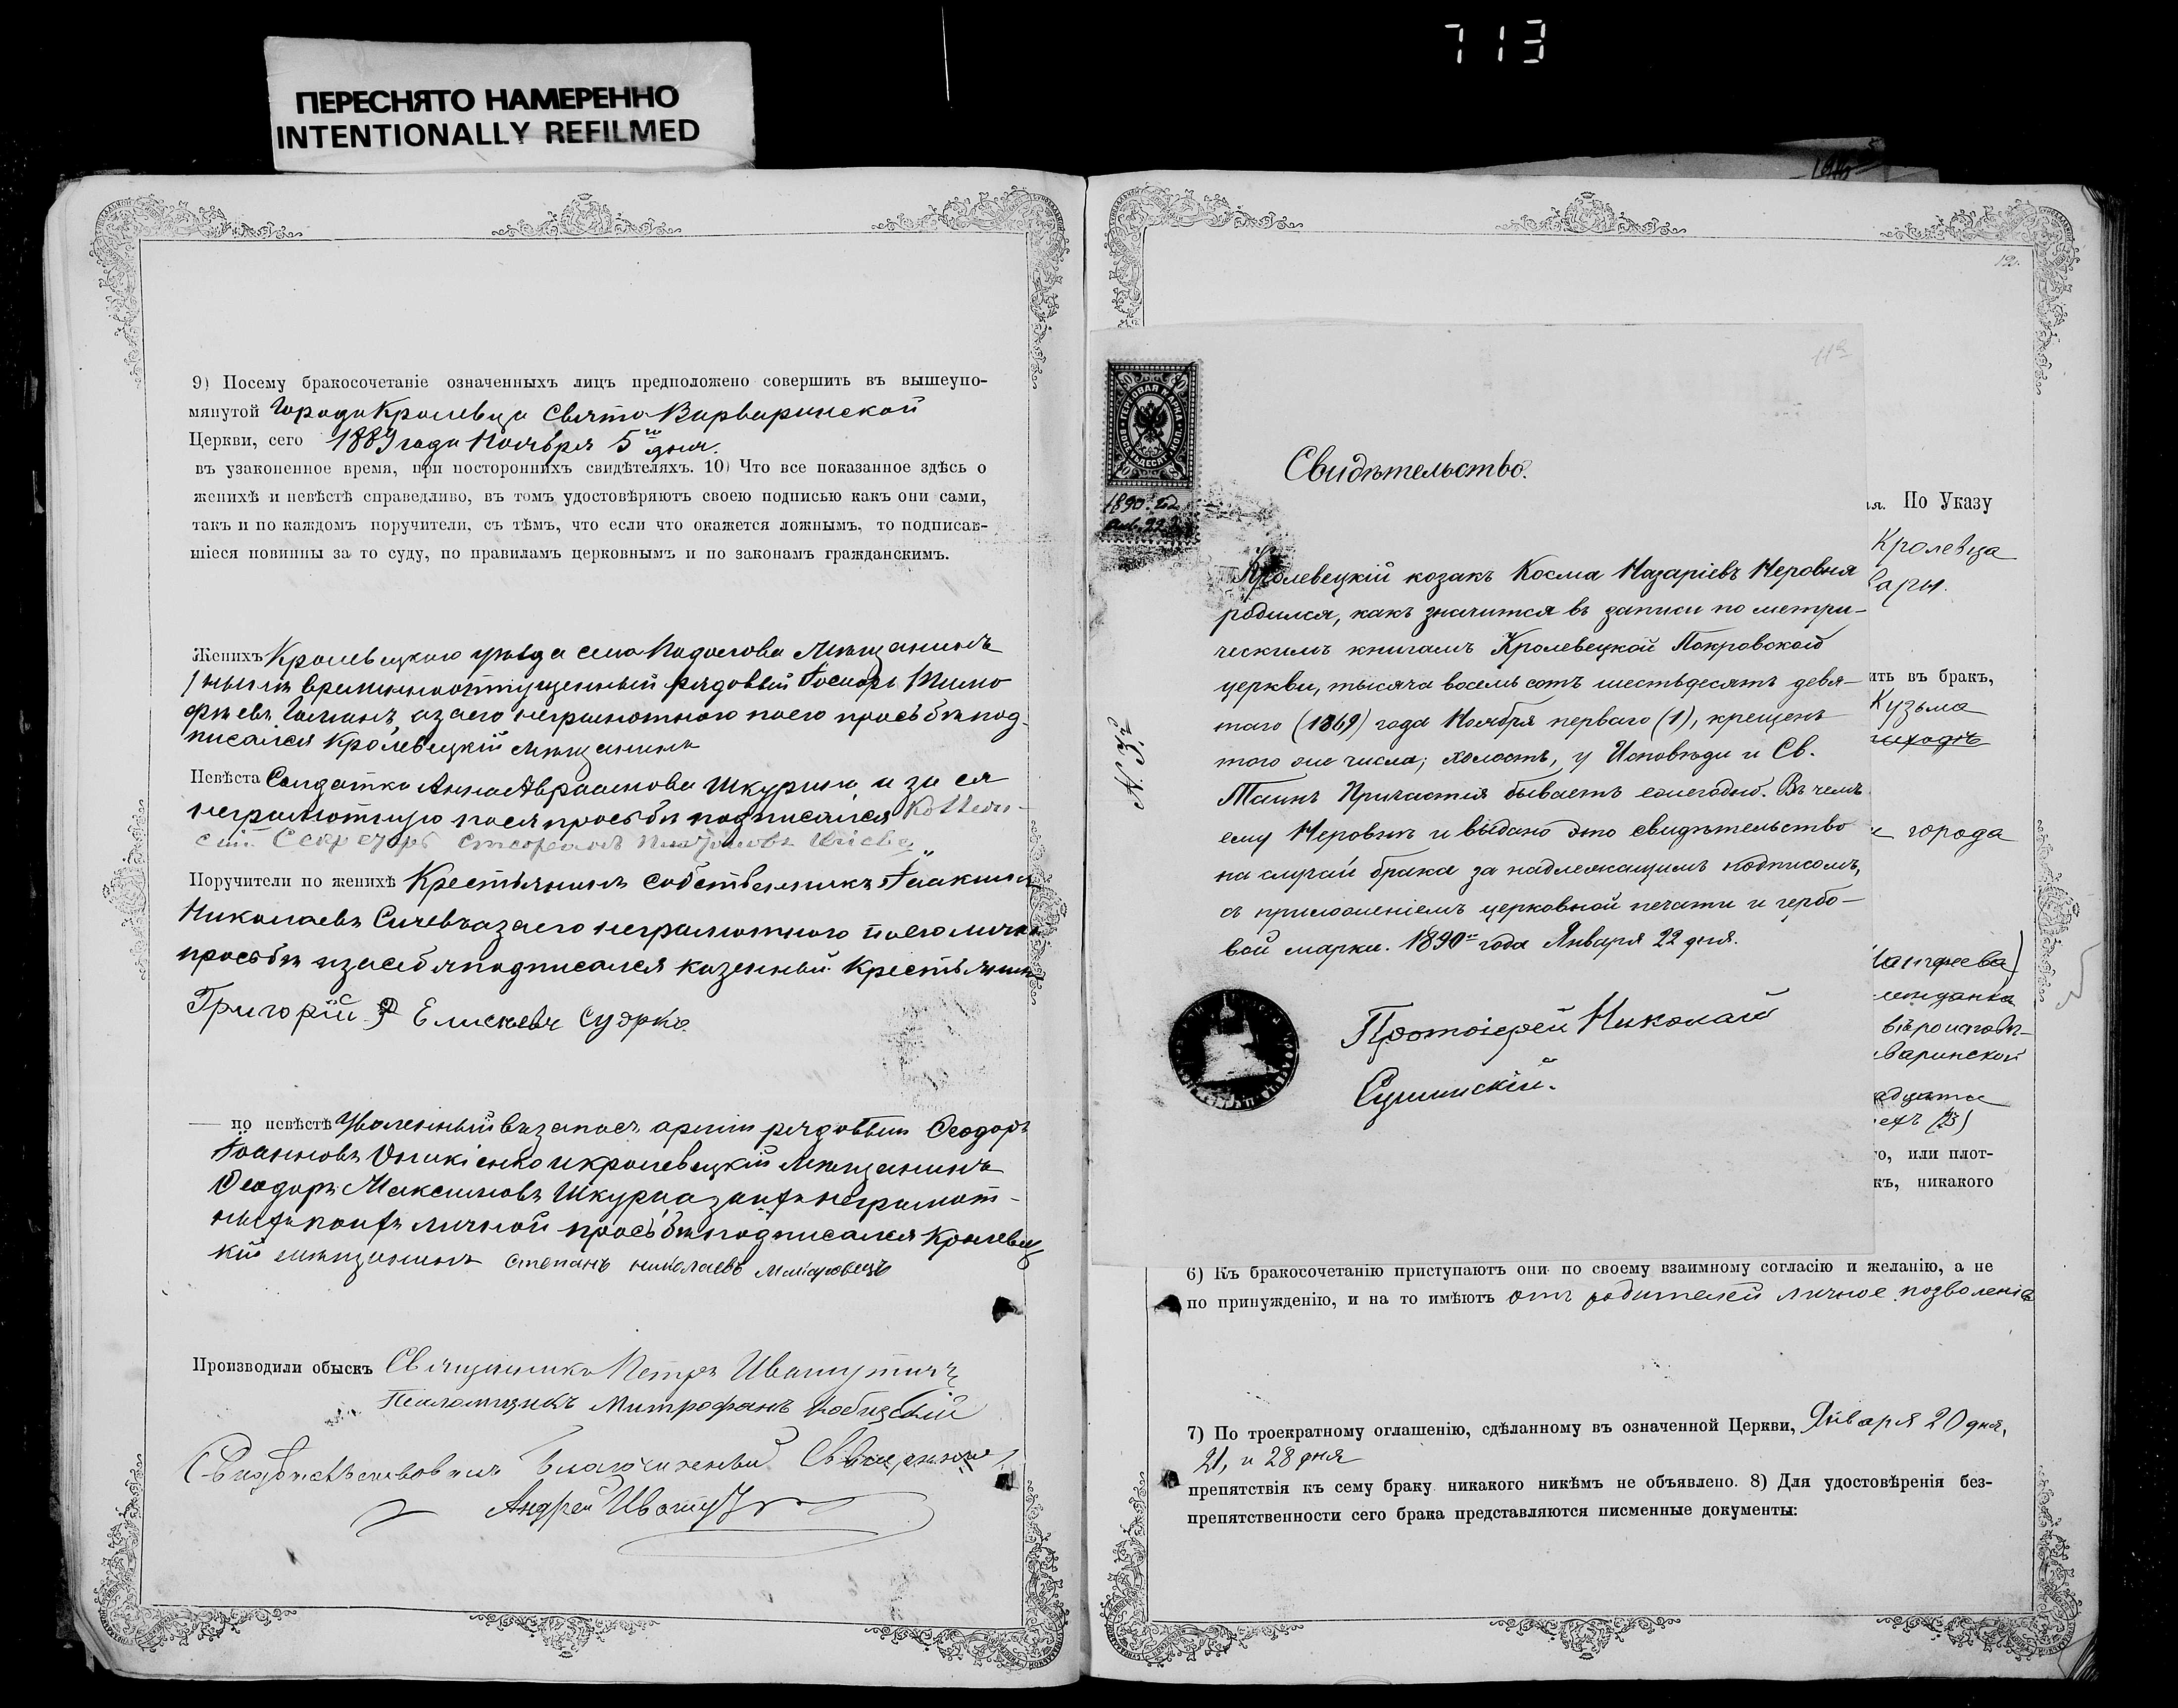 713
ПЕРЕСНЯТО НАМЕРЕННО
INTENTIONALLY REFILMED
9) Посему бракосочетаніе означенныхъ лицъ предположено совершить въ вышеупо-
мянутой Города Кролевца Свято-Варваринской
Церкви, сего 1889 года Ноября 5го дня.
въ узаконенное время, при постороннихъ свидѣтеляхъ. 10) Что все показанное здѣсь о
женихѣ и невѣстѣ справедливо, въ томъ удостовѣряютъ своею подписью какъ они сами,
такъ и по каждомъ поручители, съ тѣмъ, что если что окажется ложнымъ, то подписав-
шіеся повинны за то суду, по правиламъ церковнымъ и по законамъ гражданскимъ.
Женихъ Кролевецкаго уѣзда села Подолова Мѣщанинъ
временноотпущенный рядовый Тимо
фѣевъ азаего неграмотного поего просьбѣ под-
писался Кролевецкій мѣщанинъ
Невѣста Солдатка Анна Авраамова Шкурина, и за ея
неграмотную поея просьбѣ подписался
Поручители по женихѣ Крестьянинъ собственникъ Іоакимъ
Николаевъ азаего неграмотного поего личн
просьбѣ изасебя подписался казенный Крестьянин
Григорій Елисѣевъ
— по невѣстѣ Уволенный взапасъ арміи рядовый Ѳеодоръ
Іоанновъ икролевецкій Мѣщанинъ
Ѳеодоръ Максимовъ Шкура азанихъ неграмот-
ныхъ поихъ личной просьбѣ подписался Кролевец
кій мѣщанинъ Степанъ Николаевъ
Производили обыскъ Священникъ Петръ Ивашутичъ
Псаломщикъ Митрофанъ
Свидѣтельствовалъ Благочинный Священникъ
Андрей
12.
11а
1890. год.
Янв. 22
№ 32
Свидѣтельство.
Кролевецкій козакъ Косма Назаріевъ Неровня
родился, какъ значится въ записи по метри-
ческимъ книгамъ Кролевецкой Покровской
церкви, тысяча восемь сотъ шестьдесятъ девя-
таго (1869) года Ноября перваго (1), крещенъ
того же числа; холостъ, у Исповѣди и Св.
Таинъ Причастія бываетъ ежегодно. Въ чемъ
ему Неровнѣ и выдано это свидѣтельство
на случай брака за надлежащимъ подписомъ,
съ приложеніемъ церковной печати и гербо-
вой марки. 1890го года Января 22 дня.
Протоіерей Николай
Сушинскій.
ія. По Указу
Кролевца
ить въ бракъ,
Кузьма
города
варинской
(23)
го, или плот-
къ, никакого
6) Къ бракосочетанію приступаютъ они по своему взаимному согласію и желанію, а не
по принужденію, и на то имѣютъ отъ родителей личное позволеніе
7) По троекратному оглашенію, сдѣланному въ означенной Церкви, Января 20 дня,
21, и 28 дня
препятствія къ сему браку никакого никѣмъ не объявлено. 8) Для удостовѣренія без-
препятственности сего брака представляются писменные документы: